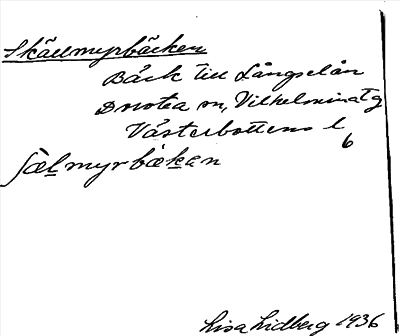 Skällmyrbäcken
Bäck till Långselån
Dorotea sn, Vilhelmina tg
Västerbottens l
6
ʃæl̲myrbæk̲a̲n
Lisa Lidberg 1936